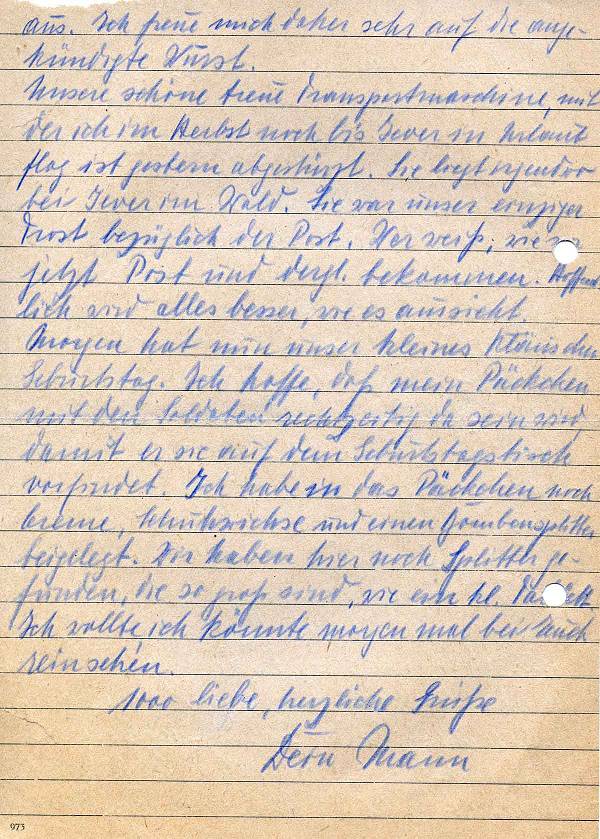 aus. Ich freue mich daher sehr auf die ange-
kündigte Wurst.
Unsere schöne treue Transportmaschine, mit
der ich im Herbst noch bis Jever in Urlaub
flog ist gestern abgestürzt. Sie liegt irgendwo
bei Jever im Wald. Sie war unser einziger
Trost bezüglich der Post. Wer weiß, wie wir
jetzt Post und dergl. bekommen. Hoffent
lich wird alles besser, wie es aussieht.
Morgen hat nun unser kleines Kläuschen
Geburtstag. Ich hoffe, daß mein Päckchen
mit den Soldaten rechtzeitig da sein wird,
damit er sie auf dem Geburtstagstisch
vorfindet. Ich habe in das Päckchen noch
Creme, Schuhwichse und einen Bombensplitter
beigelegt. Wir haben hier noch Splitter ge-
funden, die so groß sind, wie ein kl.
Ich wollte ich könnte morgen mal bei Euch
reinsehen.
1000 liebe, herzliche Grüße
Dein Mann
973